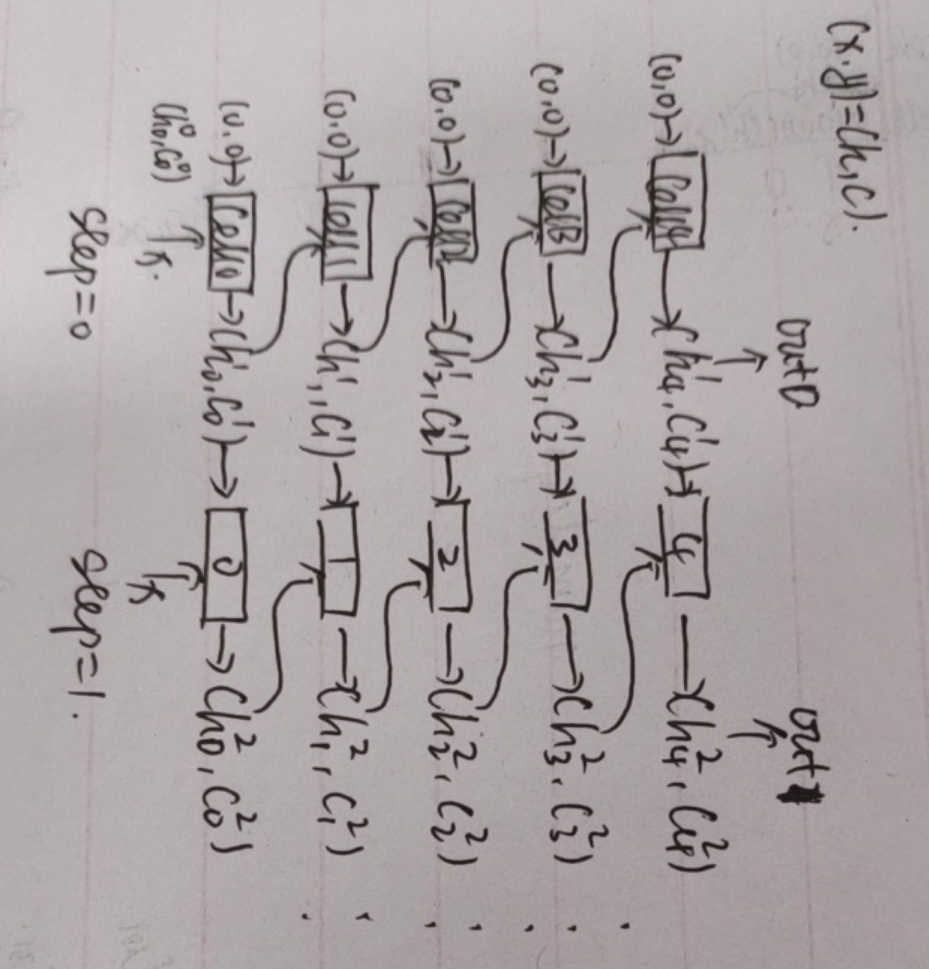 (x.y)=(h,c).
out0 ↑ out1 ↑
(0,0)→ Cell4 →(h₄¹,C₄¹)→ 4 →(h₄²,C₄²)
(0,0)→ Cell3 →(h₃¹,C₃¹)→ 3 →(h₃²,C₃²)
(0,0)→ Cell2 →(h₂¹,C₂¹)→ 2 →(h₂²,C₂²)
(0,0)→ Cell1 →(h₁¹,C₁¹)→ 1 →(h₁²,C₁²)
(0,0)→ Cell0 →(h₀¹,C₀¹)→ 0 →(h₀²,C₀²)
(h₀⁰,C₀⁰) ↑ x. ↑ x
step=0 step=1.